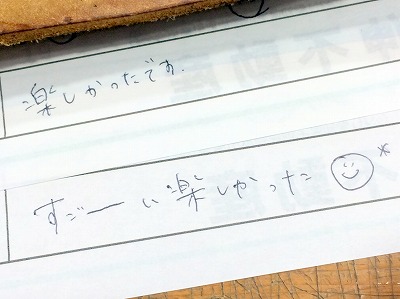 楽しかったです.
すごーい楽しかった☺*